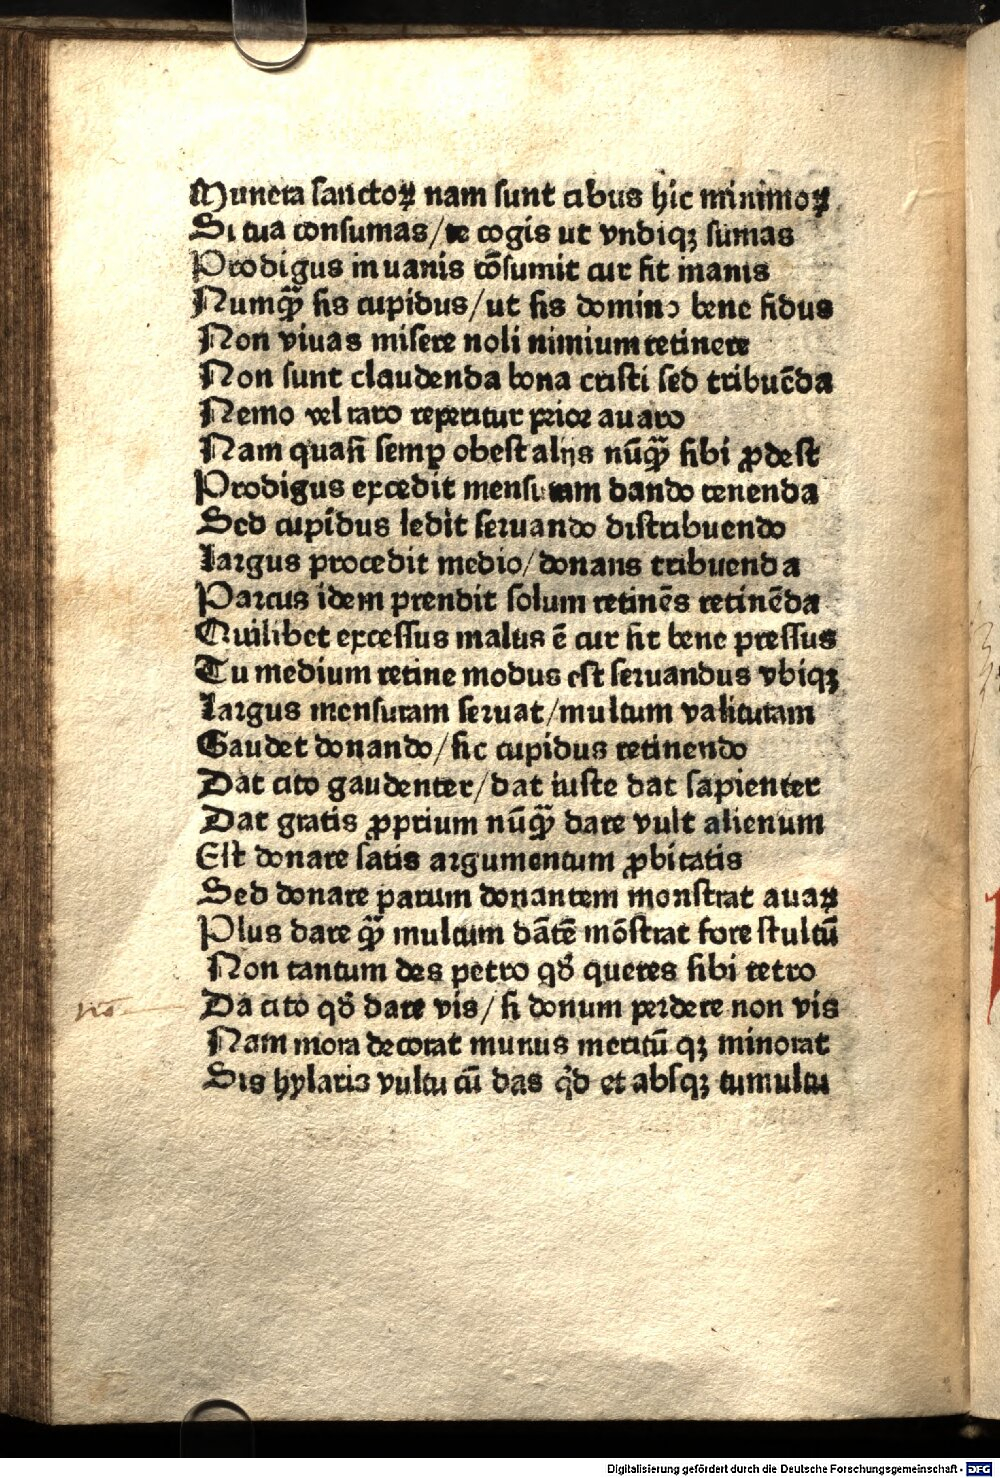 Munera sanctoꝝ nam sunt cibus hic minimoꝝ
Si tua consumas/te cogis ut vndiqꝫ sumas
Prodigus in uanis cōsumit cur fit inanis
Numqᷓꝫ sis cupidus/ut sis domino bene fidus
Non viuas misere noli nimium retinere
Non sunt claudenda bona cristi sed tribuēda
Nemo vel raro reperitur peior auaro
Nam quasi semꝑ obest alijs nūqᷓꝫ sibi ꝓdest
Prodigus excedit mensuram dando tenenda
Sed cupidus ledit seruando distribuendo
Largus procedit medio/donans tribuenda
Parcus idem prendit solum retinēs retinēda
Quilibet excessus malus ē cur fit bene pressus
Tu medium retine modus est seruandus vbiqꝫ
Largus mensuram seruat/multum valituram
Gaudet donando/sic cupidus retinendo
Dat cito gaudenter/dat iuste dat sapienter
Dat gratis ꝓprium nūqᷓꝫ dare vult alienum
Est donare satis argumentum ꝓbitatis
Sed donare parum donantem monstrat auaꝝ
Plus dare qᷓꝫ multum dātē mōstrat fore stultū
Non tantum des petro qđ queres sibi retro
Da cito qđ dare vis/si donum perdere non vis
Nam mora decorat munus meritū qꝫ minorat
Sis hylaris vultu cū das qͥd et absqꝫ tumultu
Digitalisierung gefördert durch die Deutsche Forschungsgemeinschaft - DFG